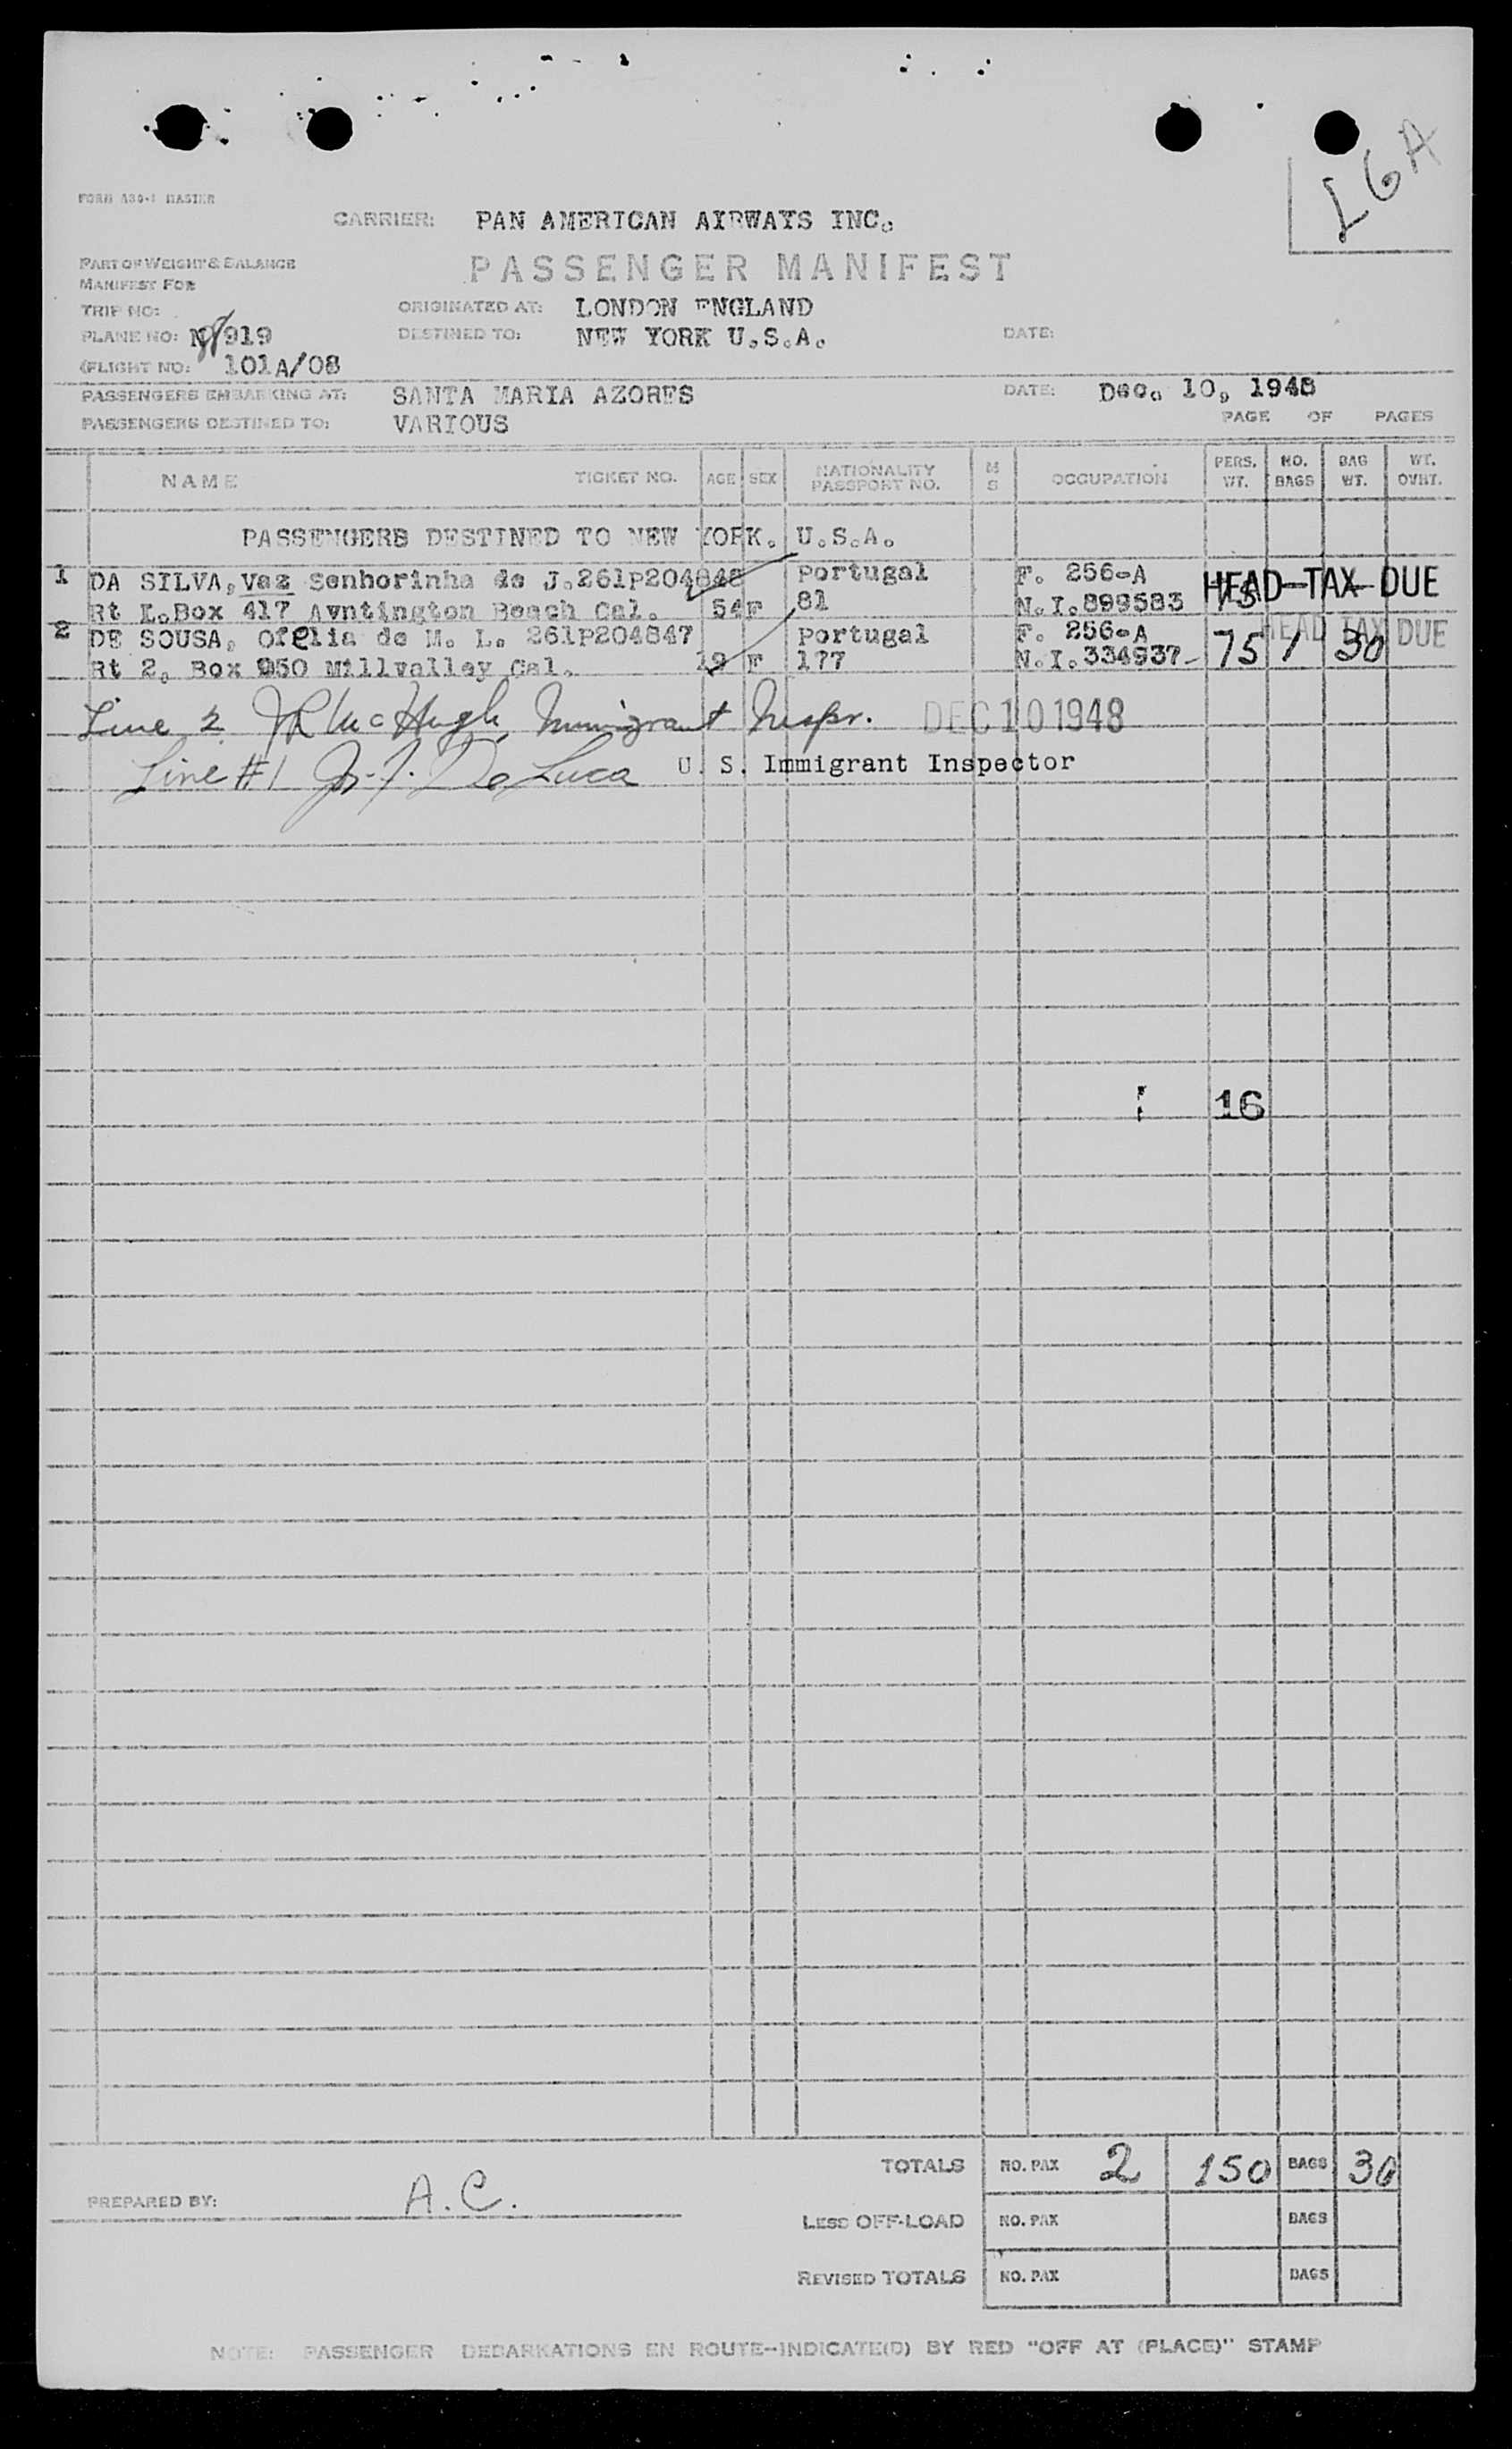 LGA
FORM 430-1 MASTER
CARRIER: PAN AMERICAN AIRWAYS INC.
PART OF WEIGHT & BALANCE
MANIFEST FOR
PASSENGER MANIFEST
TRIP NO:
ORIGINATED AT: LONDON ENGLAND
PLANE NO: 919
DESTINED TO: NEW YORK U.S.A.
DATE:
(FLIGHT NO: 101A/08
PASSENGERS EMBARKING AT: SANTA MARIA AZORES
DATE: Dec. 10, 1948
PASSENGERS DESTINED TO: VARIOUS
PAGE OF PAGES
NAME TICKET NO. AGE SEX NATIONALITY PASSPORT NO. M S OCCUPATION PERS. WT. NO. BAGS BAG WT. WT. OVRT.
PASSENGERS DESTINED TO NEW YORK. U.S.A.
1 DA SILVA, Vaz Senhorinha de J. 261P204848 Portugal F. 256-A
Rt L. Box 417 Avntington Beach Cal. 54 F 81 N.I.899583 75 HEAD-TAX DUE
2 DE SOUSA, Ofelia de M. L. 261P204847 Portugal F. 256-A HEAD TAX DUE
Rt 2, Box 950 Millvalley Cal. 19 F 177 N.I.334937- 75 1 30
Line 2 McHugh Immigrant Inspr. DEC 10 1948
Line #1 De Luca U. S. Immigrant Inspector
16
TOTALS NO. PAX 2 150 BAGS 30
PREPARED BY: A.C.
LESS OFF-LOAD NO. PAX BAGS
REVISED TOTALS NO. PAX BAGS
NOTE: PASSENGER DEBARKATIONS EN ROUTE--INDICATE(D) BY RED "OFF AT (PLACE)" STAMP